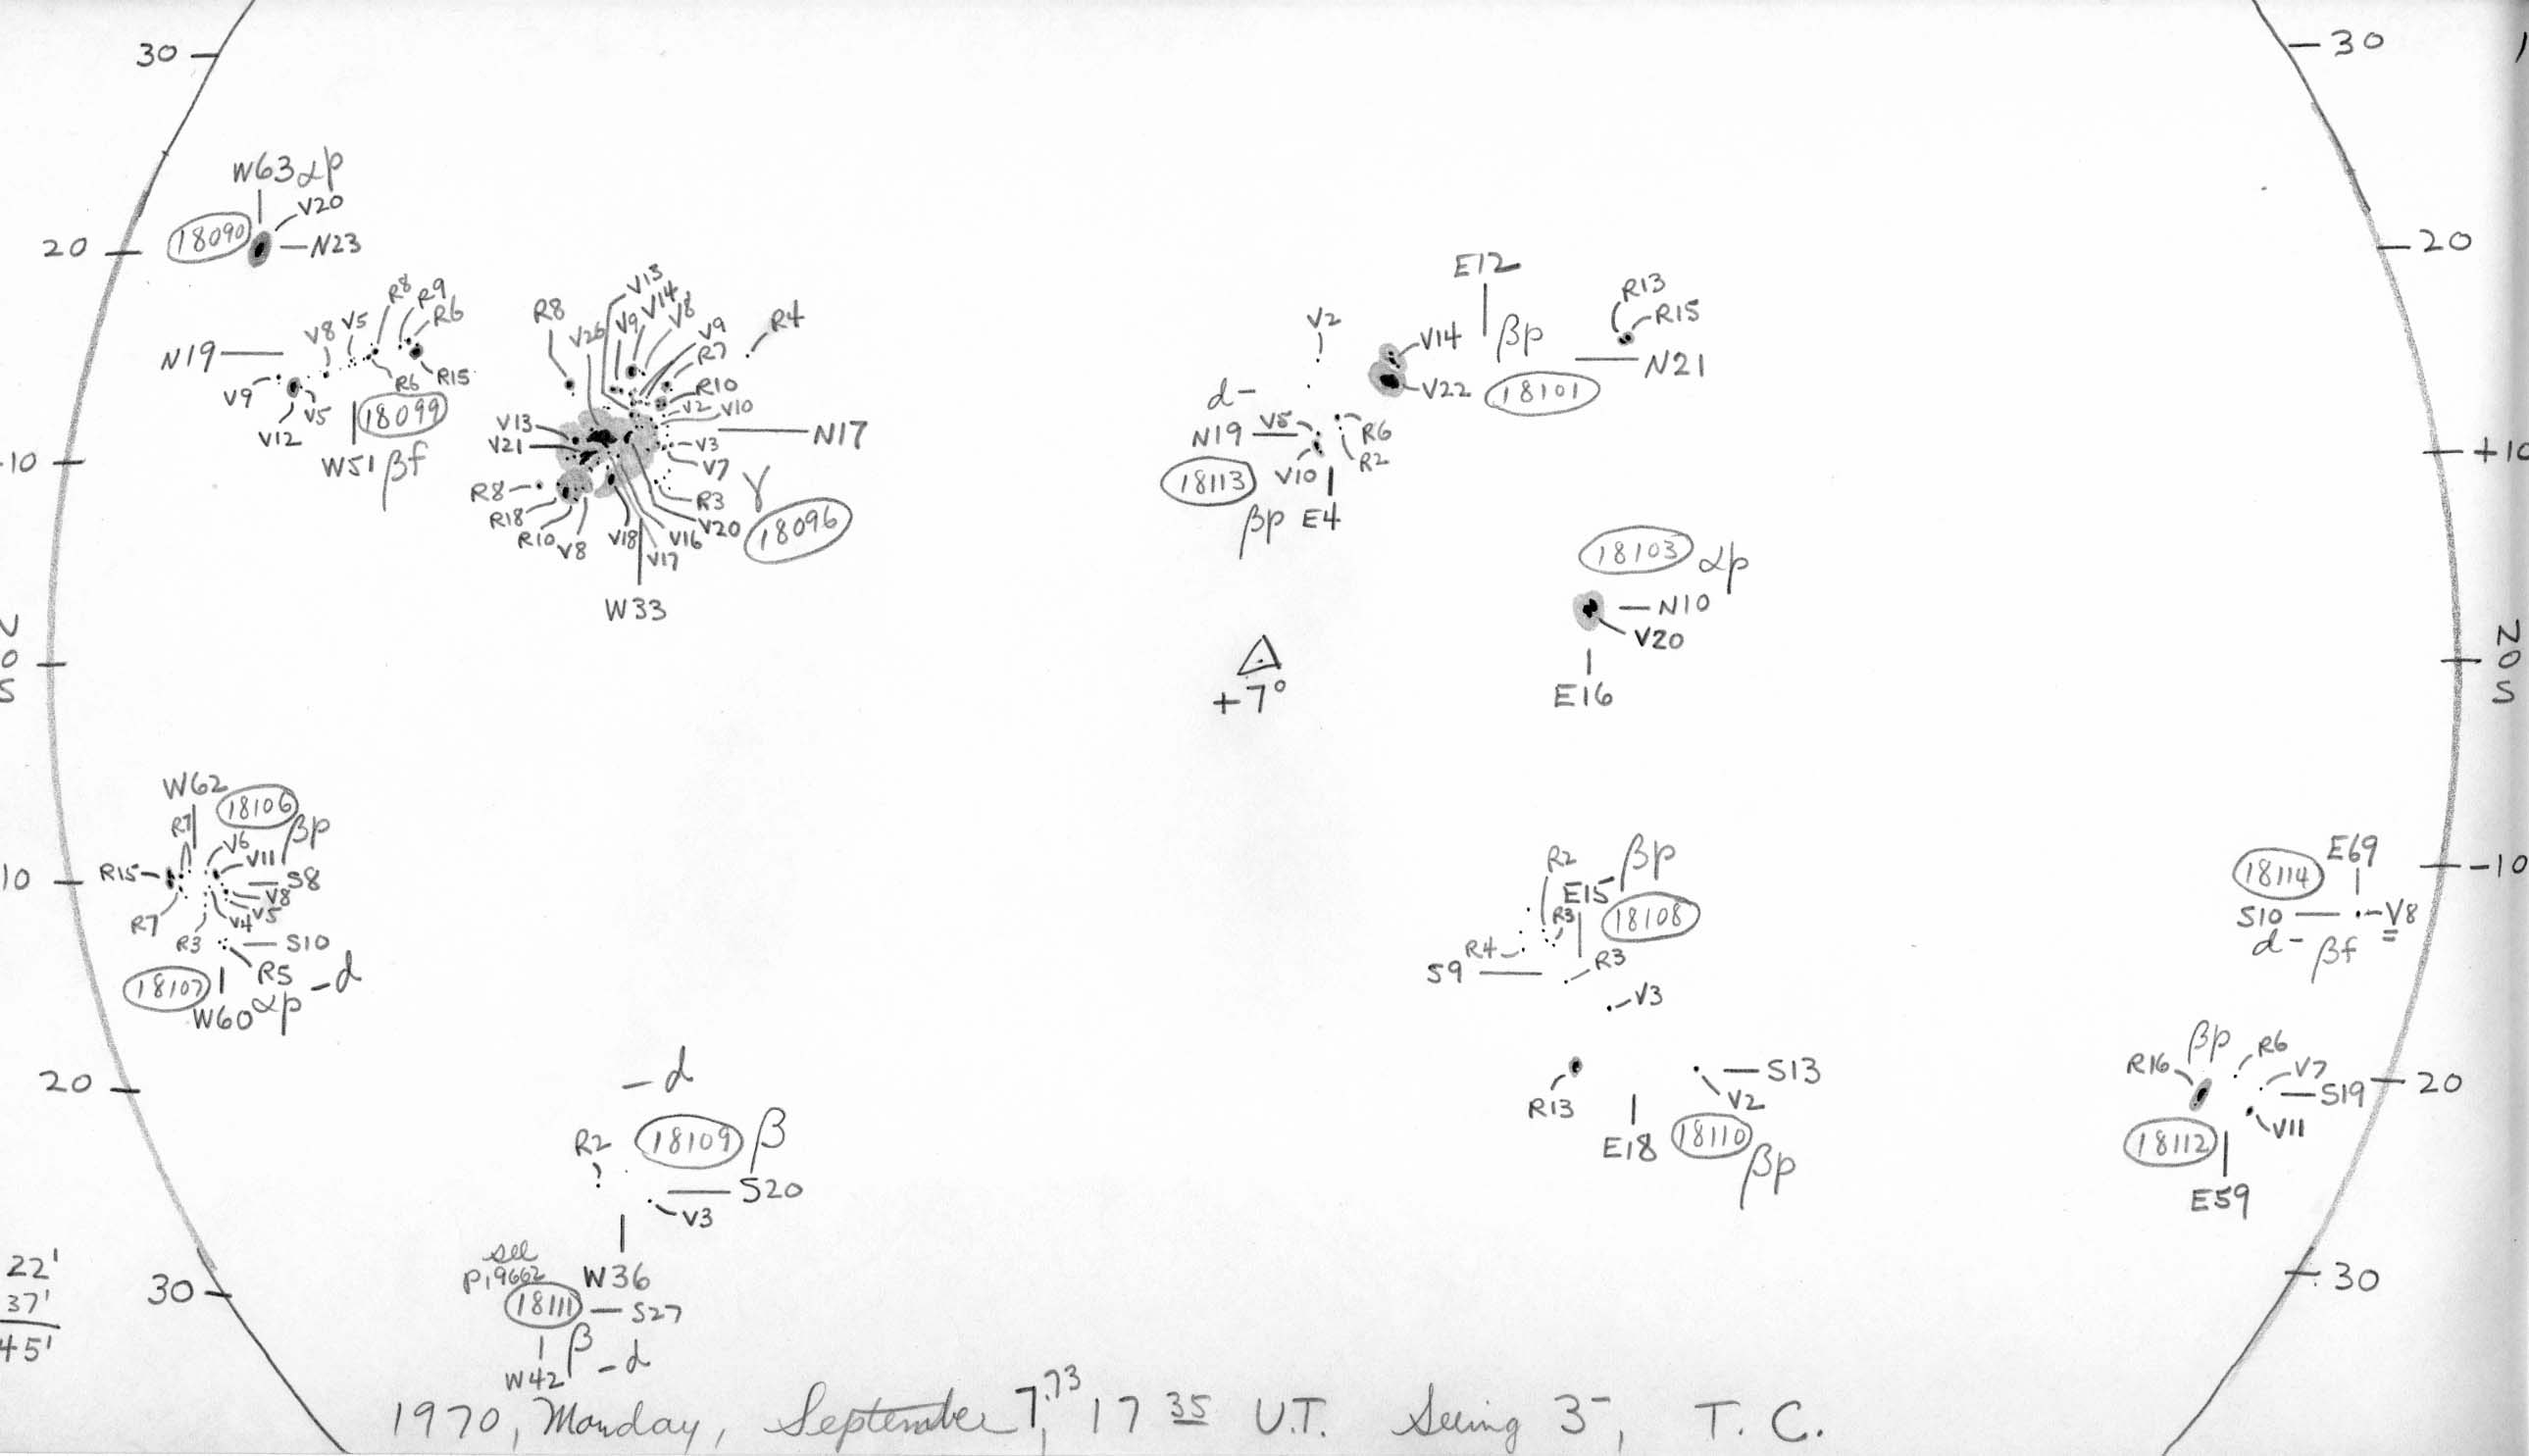 30
30
W63 αp
V20
18090
N23
20
20
E12
R8
R9
R6
V8
V5
N19
R6
R15
V9
V5
V12
18099
W51 βf
V13
V14
V8
R8
V26
V9
V9
R7
R4
R10
V2
V10
V13
V21
N17
V3
V7
R8
R3
γ
R18
V20
18096
R10
V8
V18
V16
V17
W33
V2
V14
βp
R13
R15
N21
V22
18101
d-
N19
V5
R6
R2
18113
V10
βp
E4
10
+10
18103 αp
N10
V20
E16
+7°
N
0
S
N
0
S
W62
18106
βp
R7
V6
V11
R15
S8
V8
V5
R7
V4
R3
S10
R5
-d
18107
W60 αp
10
-10
R2
βp
E15
R3
18108
R4
R3
S9
V3
E69
18114
S10
V8
d- βf
20
20
-d
18109
β
R2
S20
V3
W36
see
p19662
18111
S27
β
W42
-d
S13
R13
V2
E18
18110
βp
βp
R6
R16
V7
S19
V11
18112
E59
22'
37'
45'
30
30
1970, Monday, September 7.73, 17 35 U.T. Seeing 3-, T. C.